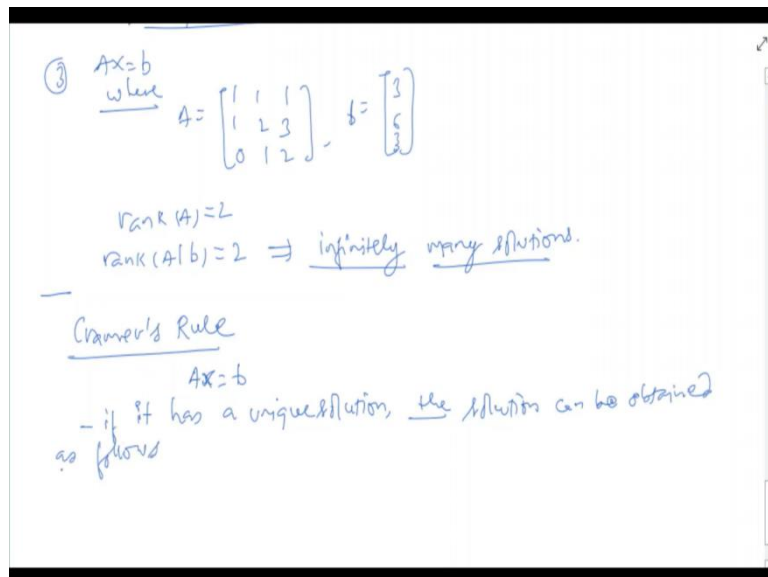 ③ Ax=b
where
A= [1 1 1
1 2 3
0 1 2], b= [3
6
3]
rank(A)=2
rank(A|b)=2 ⇒ infinitely many solutions.
Cramer's Rule
Ax=b
- if it has a unique solution, the solution can be obtained
as follows